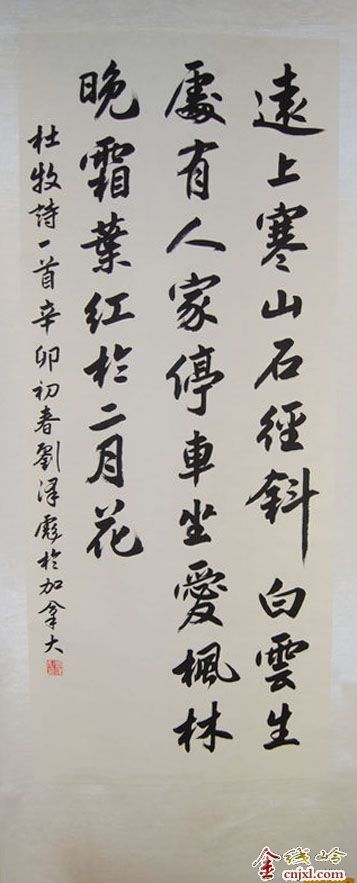 遠上寒山石徑斜白雲生
處有人家停車坐愛楓林
晚霜葉紅於二月花
杜牧詩一首辛卯初春劉澤彪於加拿大
金线岭
cnjxl.com